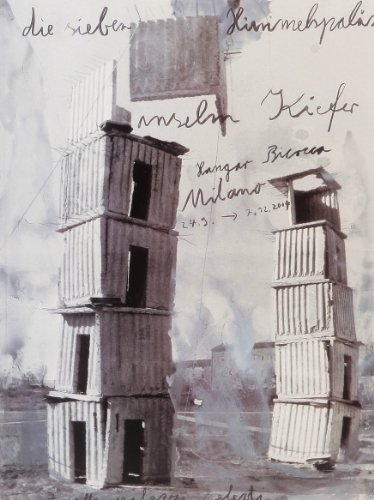 die sieben Himmelspaläs
nselm Kiefer
Hangar Bicocca
Milano
24.9. → 7.12.2004